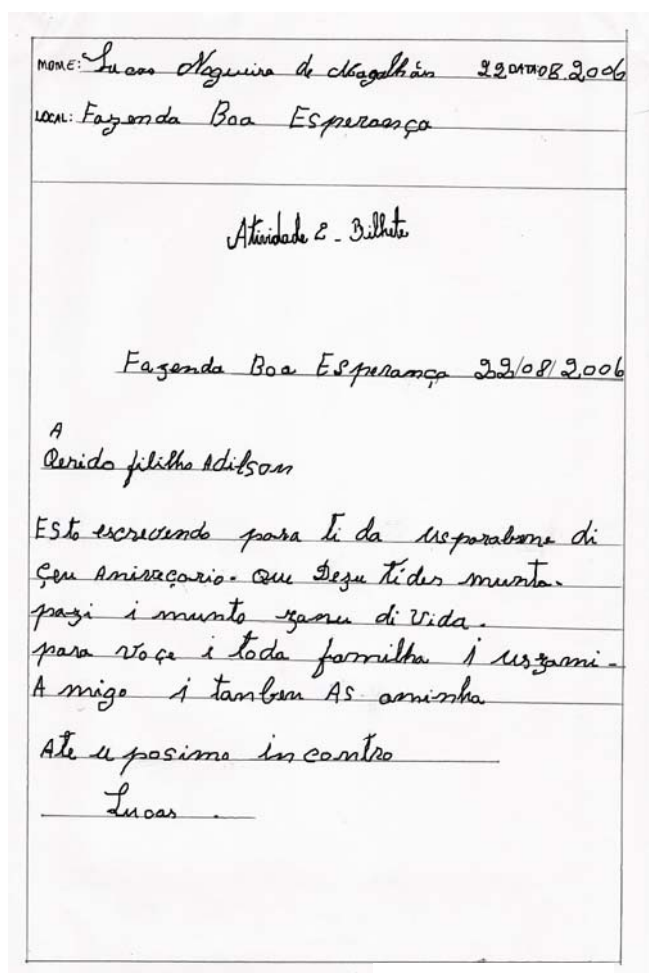 NOME: Lucas Nogueira de Magalhãis 22 DATA 08.2006
LOCAL: Fazenda Boa Esperança
Atividade 2 - Bilhete
Fazenda Boa Esperança 22/08/2006
A
Qerido fililho Adilson
Esto escrevendo para ti da usparabens di
çeu Aniveçario. Que Dezu tides munta.
pazi i munto zanu di Vida.
para voçe i toda familha i uszami-
A migo i tanben As aminha
Ate u posimo incontro
Lucas.